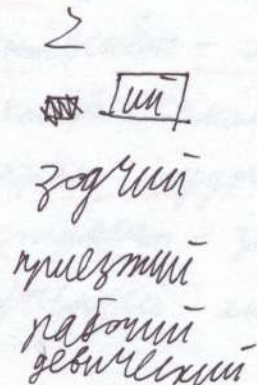 2
ий
зодчий
приезжий
рабочий
девический